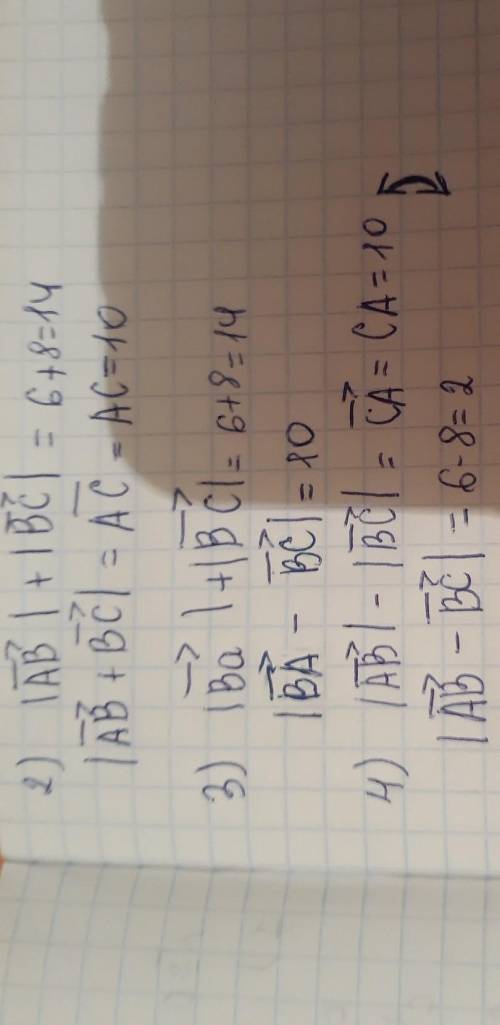 2) |AB⃗| + |BC⃗| = 6+8=14
|AB⃗ + BC⃗| = A̅C̅ = AC=10
3) |Ba⃗| + |BC⃗| = 6+8=14
|BA⃗ - BC⃗| = 10
4) |AB⃗| - |BC⃗| = CA⃗ = CA=10
|AB⃗ - BC⃗| = 6-8=2